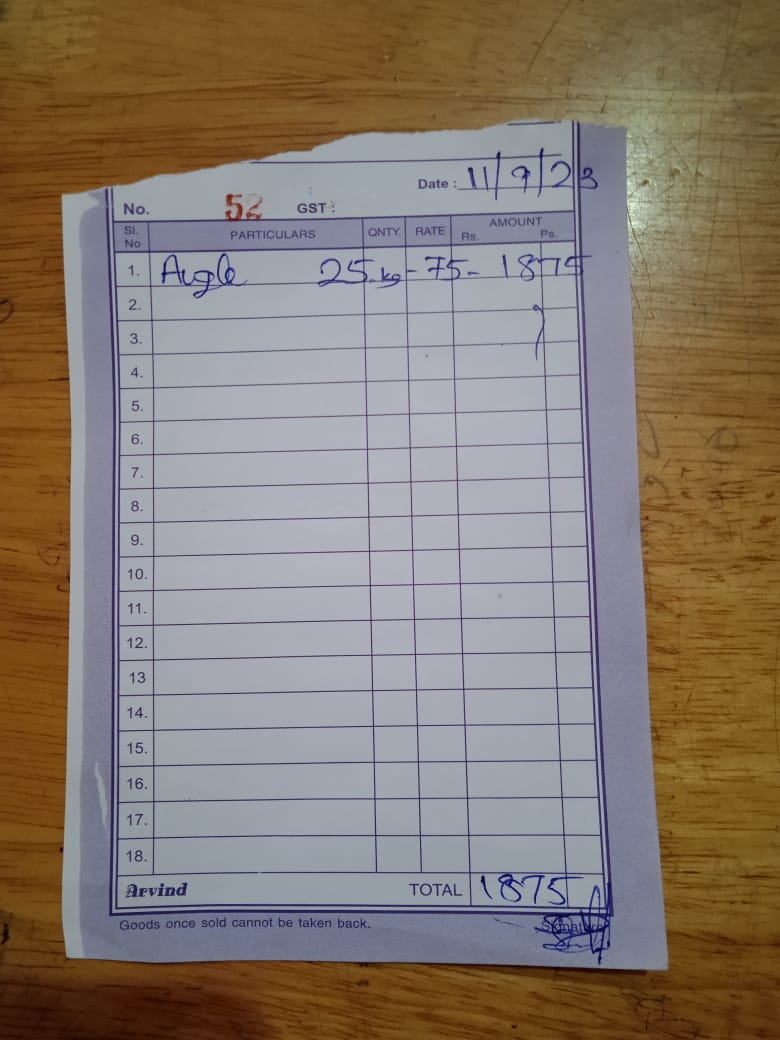 Date : 11/9/23
No. 52 GST :
Sl. No PARTICULARS QNTY. RATE AMOUNT Rs. Ps.
1. Angle 25 kg - 75 - 1875
2.
3.
4.
5.
6.
7.
8.
9.
10.
11.
12.
13
14.
15.
16.
17.
18.
Arvind TOTAL 1875
Goods once sold cannot be taken back. Signature